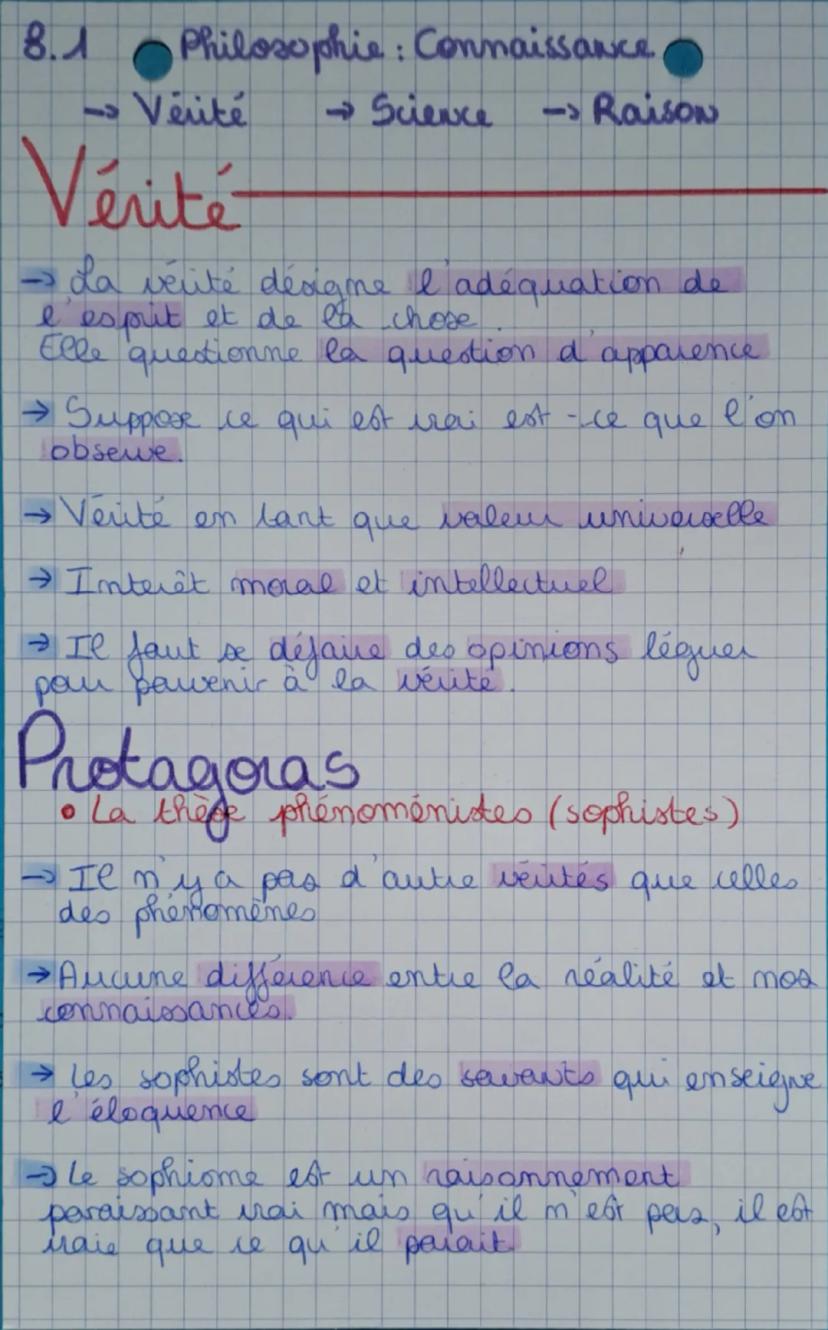 8.1 Philosophie : Connaissance
→ Vérité → Science → Raison
Vérité
→ La vérité désigne l'adéquation de
l'esprit et de la chose.
Elle questionne la question d'apparence
→ Suppose ce qui est vrai est-ce que l'on
observe.
→ Vérité en tant que valeur universelle
→ Interêt moral et intellectuel
→ Il faut se défaire des opinions léguer
pour parvenir à la vérité.
Protagoras
• La thèse phénoménistes (sophistes)
→ Il n'y a pas d'autre vérités que celles
des phénomènes
→ Aucune différence entre la réalité et nos
connaissances.
→ Les sophistes sont des savants qui enseigne
l'éloquence
→ Le sophisme est un raisonnement
paraissant vrai mais qu'il n'est pas, il est
vraie que ce qu'il parait.